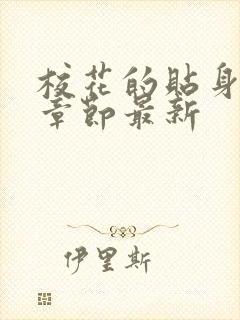 校花的貼身
章節最新
伊里斯